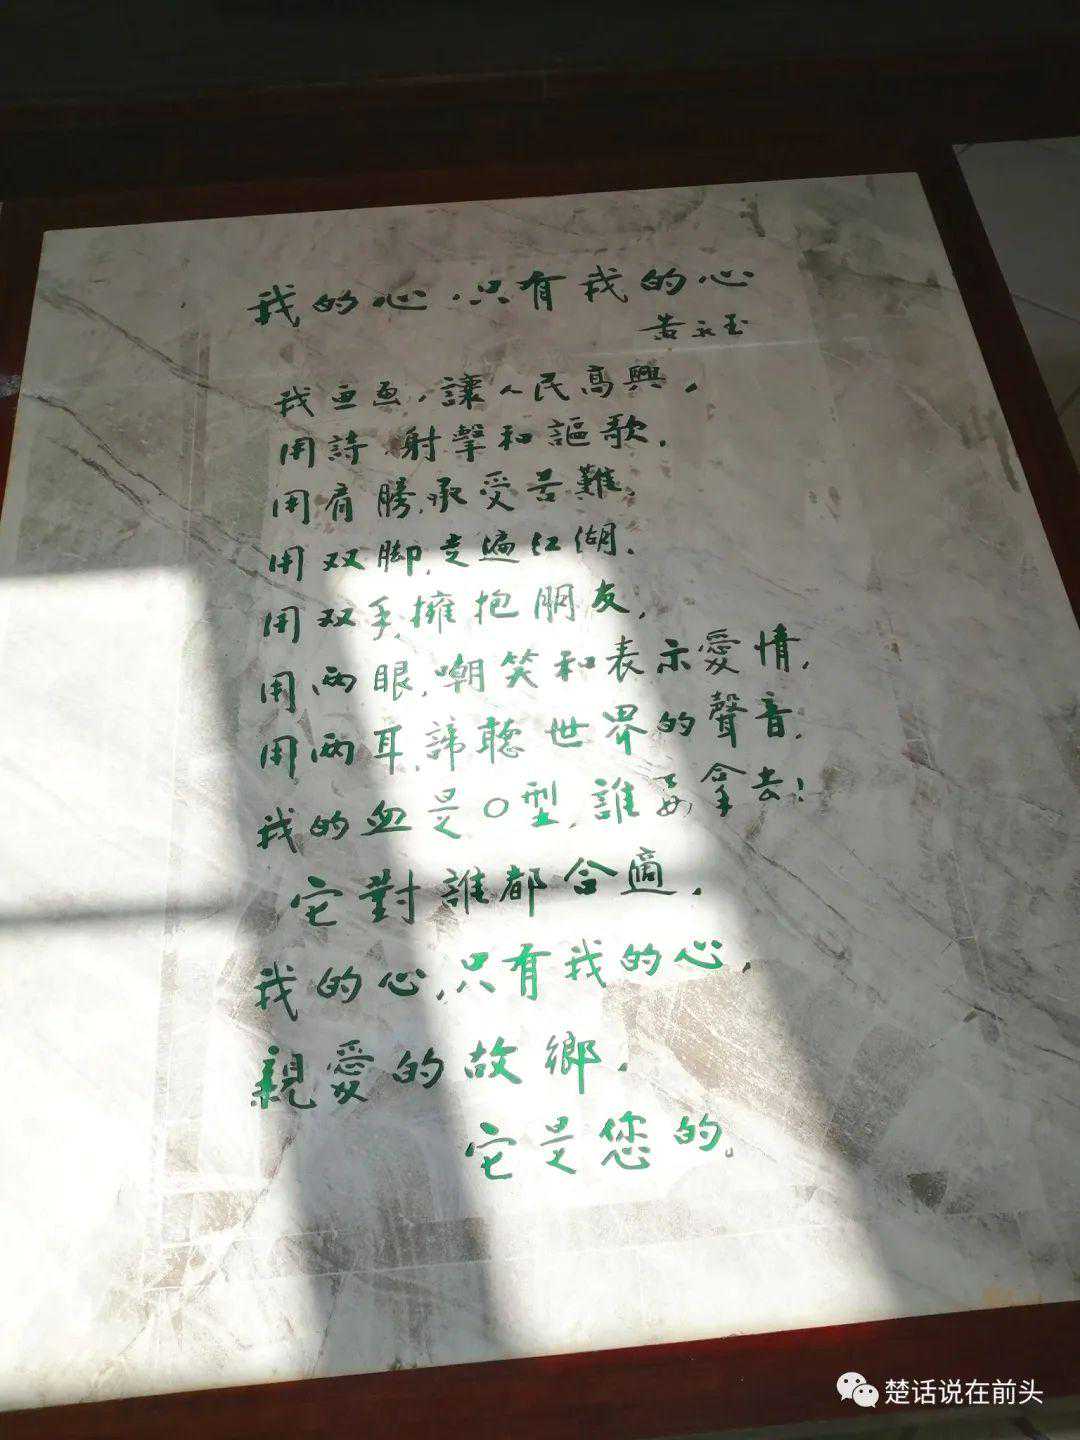 我的心，只有我的心
黄永玉
我画画，讓人民高興，
用詩，射擊和謳歌，
用肩膀，承受苦難，
用双脚，走遍江湖，
用双手，擁抱朋友，
用两眼，嘲笑和表示愛情，
用两耳，諦聽世界的聲音，
我的血是O型，誰要拿去！
它對誰都合適，
我的心，只有我的心，
親愛的故鄉，
它是您的。
楚话说在前头